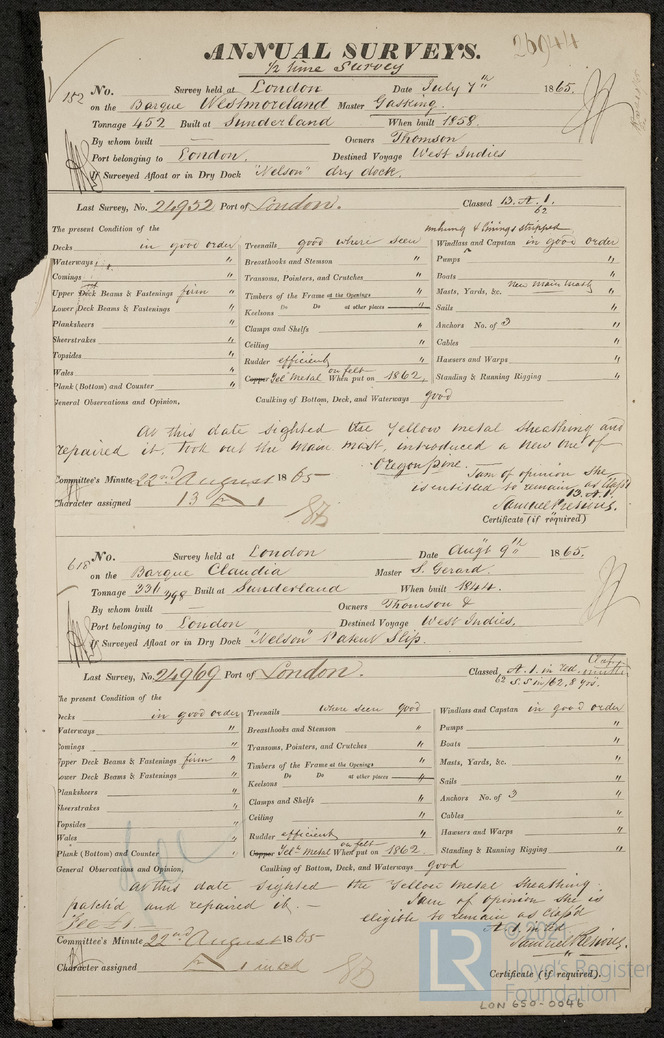 ANNUAL SURVEYS. 26944
1/2 time Survey
152 No. Survey held at London Date July 7th 1865.
on the Barque Westmoreland Master Gasking.
Tonnage 452 Built at Sunderland When built 1858.
By whom built — Owners Thomson
Port belonging to London. Destined Voyage West Indies
If Surveyed Afloat or in Dry Dock "Nelson" dry dock.
Last Survey, No. 24932 Port of London. Classed 13.A.1.
62
The present Condition of the
unhung & linings stripped
Decks in good order Treenails good where seen Windlass and Capstan in good order
Waterways " Breasthooks and Stemson " Pumps "
Comings " Transoms, Pointers, and Crutches " Boats "
New main mast
Upper Deck Beams & Fastenings firm Timbers of the Frame at the Openings " Masts, Yards, &c. "
Lower Deck Beams & Fastenings " Keelsons Do Do at other places " Sails "
Planksheers " Clamps and Shelfs " Anchors No. of 3 "
Sheerstrakes " Ceiling " Cables "
Topsides " Rudder efficient Hawsers and Warps "
Wales " Copper Yel Metal on felt When put on 1862. Standing & Running Rigging "
Plank (Bottom) and Counter "
General Observations and Opinion, Caulking of Bottom, Deck, and Waterways good
At this date sighted the Yellow metal sheathing and
repaired it, took out the main mast, introduced a new one of
Oregon pine. I am of opinion she
is entitled to remain as Class'd
13.A.1.
Committee's Minute 22nd August 1865
Character assigned 13 A 1
Samuel Pretious.
Certificate (if required)
618 No. Survey held at London Date Augt 9th 1865.
on the Barque Claudia Master S. Gerard.
Tonnage 331/398 Built at Sunderland When built 1844.
By whom built — Owners Thomson &
Port belonging to London Destined Voyage West Indies.
If Surveyed Afloat or in Dry Dock "Nelson" Patent Slip.
Last Survey, No. 24969 Port of London. Classed A.1. in red
62 S.S in/62, 8 yrs.
The present Condition of the
Decks in good order Treenails where seen good Windlass and Capstan in good order
Waterways " Breasthooks and Stemson " Pumps "
Comings " Transoms, Pointers, and Crutches " Boats "
Upper Deck Beams & Fastenings firm Timbers of the Frame at the Openings " Masts, Yards, &c. "
Lower Deck Beams & Fastenings " Keelsons Do Do at other places " Sails "
Planksheers " Clamps and Shelfs " Anchors No. of 3 "
Sheerstrakes " Ceiling " Cables "
Topsides " Rudder efficient Hawsers and Warps "
Wales " Copper Yel. Metal on felt When put on 1862 Standing & Running Rigging "
Plank (Bottom) and Counter "
General Observations and Opinion, Caulking of Bottom, Deck, and Waterways good
At this date sighted the Yellow metal sheathing
patch'd and repaired it. — I am of opinion she is
Fee £1 — eligible to remain as Class'd
A.1. in red
Committee's Minute 22nd August 1865
Samuel Pretious.
Character assigned A 1 in red
Certificate (if required).
© 2021
LR
Lloyd's Register
Foundation
LON 650-0046